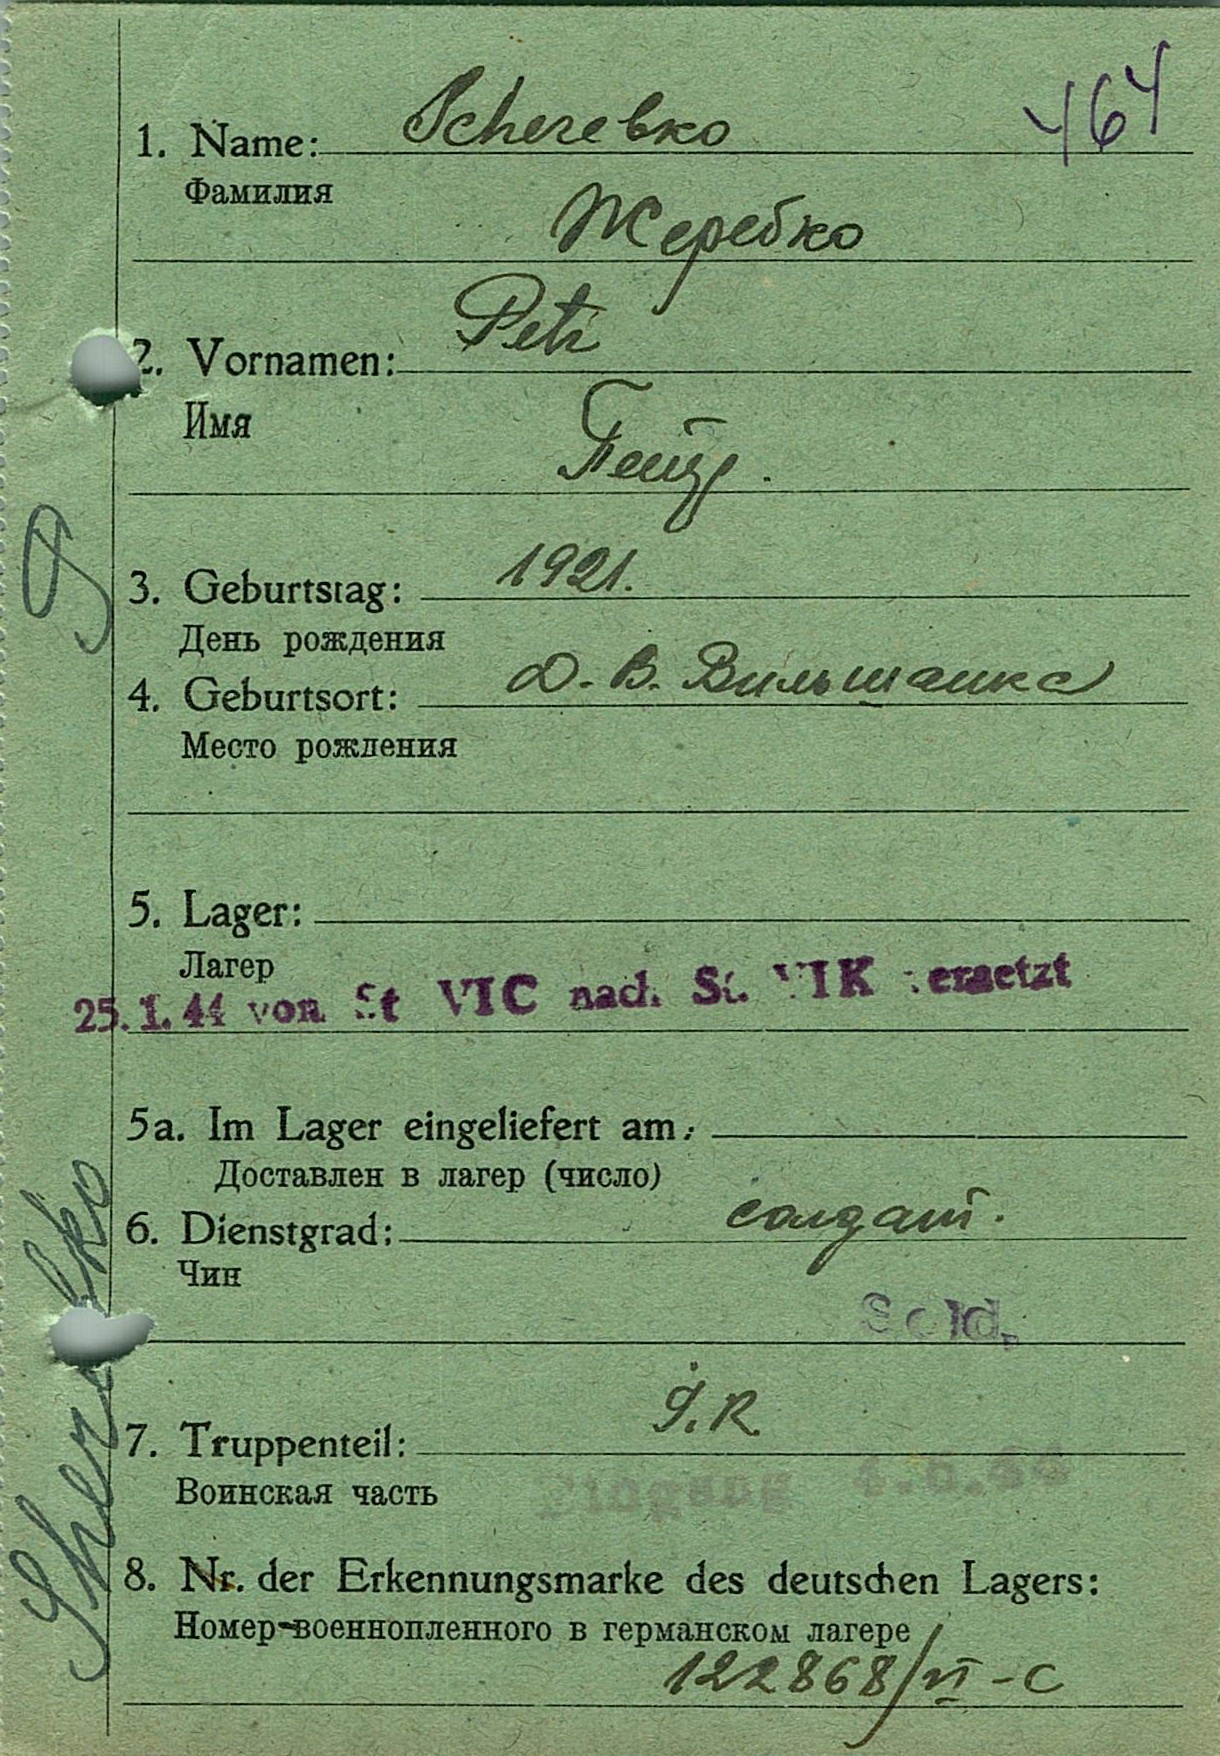 464
1. Name: Scherebko
Фамилия
Жеребко
2. Vornamen: Petr
Имя
Петр.
3. Geburtstag: 1921.
День рождения
4. Geburtsort: Д. В. Вильшанка
Место рождения
5. Lager:
Лагер
25.1.44 von St VIC nach St. VIK versetzt
5a. Im Lager eingeliefert am:
Доставлен в лагер (число)
6. Dienstgrad: солдат.
Чин
Sold.
7. Truppenteil: I.R.
Воинская часть
Eingang
8. Nr. der Erkennungsmarke des deutschen Lagers:
Номер-военнопленного в германском лагере
122868/VI-C